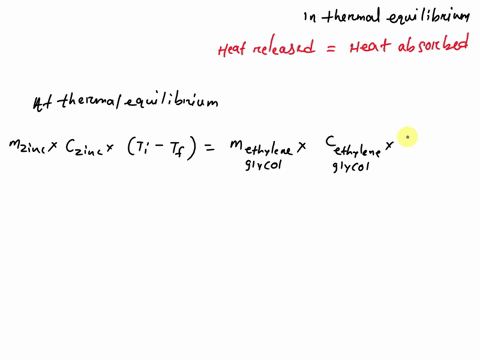 In thermal equilibrium
Heat released = Heat absorbed
At thermal equilibrium
m zinc × C zinc × (Ti - Tf) = m ethylene glycol × C ethylene glycol ×